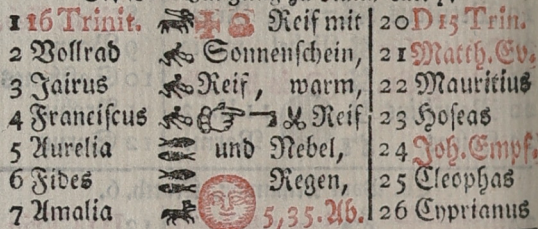 1 16 Trinit. Reif mit 20 D 15 Trin.
2 Vollrad Sonnenschein, 21 Matth. Ev.
3 Jairus Reif, warm, 22 Mauritius
4 Franciscus Reif 23 Hoseas
5 Aurelia und Nebel, 24 Joh. Empf.
6 Fides Regen, 25 Cleophas
7 Amalia 5,35. Ab. 26 Cyprianus